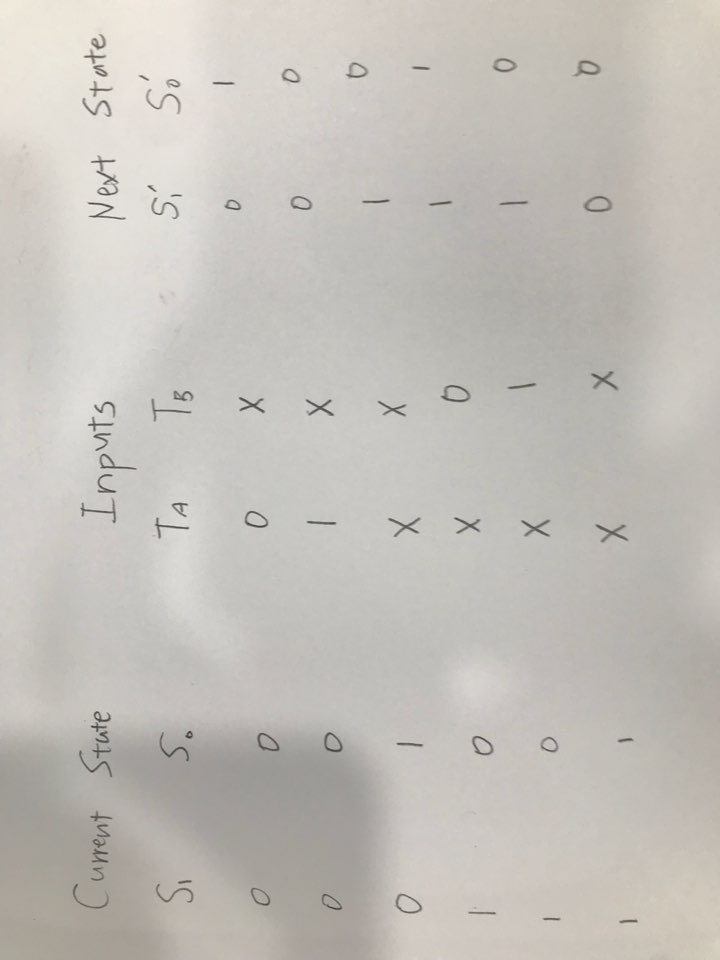 Current State Inputs Next State
S1 S0 TA TB S1' S0'
0 0 0 X 0 1
0 0 1 X 0 0
0 1 X X 1 0
1 0 X 0 1 1
1 0 X 1 1 0
1 1 X X 0 0